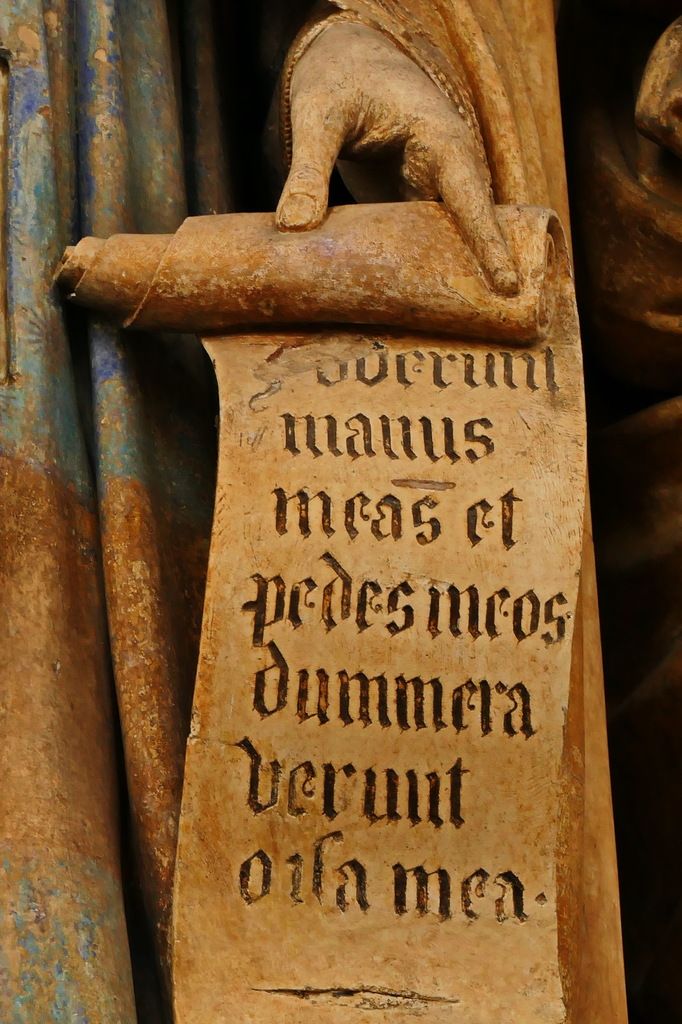 foderunt
manus
meas et
pedes meos
dummera
verunt
oisa mea.